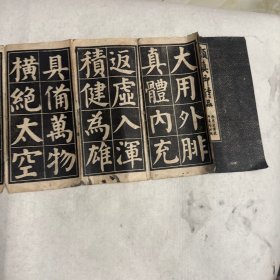 大用外腓
真體內充
返虛入渾
積健為雄
具備萬物
橫絕太空